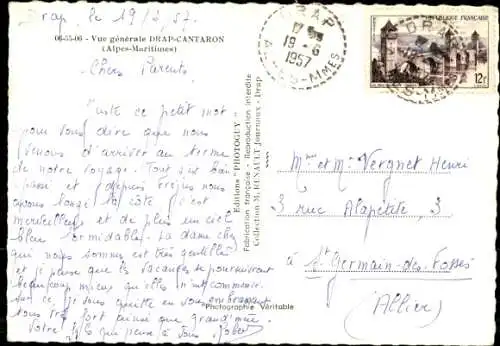 Drap, le 19/6/57
06-55-06 - Vue générale DRAP-CANTARON
(Alpes-Maritimes)
Chers Parents
Juste ce petit mot
pour vous dire que nous
venons d'arriver au terme
de notre voyage. Tout s'est bien
passé et depuis
longé la côte c'est
merveilleux et de plus un ciel
bleu formidable. La dame chez
qui nous sommes est très gentille
et je pense que les vacances se poursuivront
beaucoup mieux qu'elles n'ont commencé.
Sur ce je vous quitte en vous embrassant
tous très fort ainsi que grand'mère.
Votre fils qui pense à vous. Robert
Photographie Véritable
Editions "PHOTOGUY"
Fabrication française - Reproduction interdite
Collection M. RUNAULT Journaux - Drap
DRAP
19-6
1957
DRAP
12F
Mme et Mr Vergnet Henri
3 rue Alapetite, 3
à St Germain-des-Fossés
(Allier)